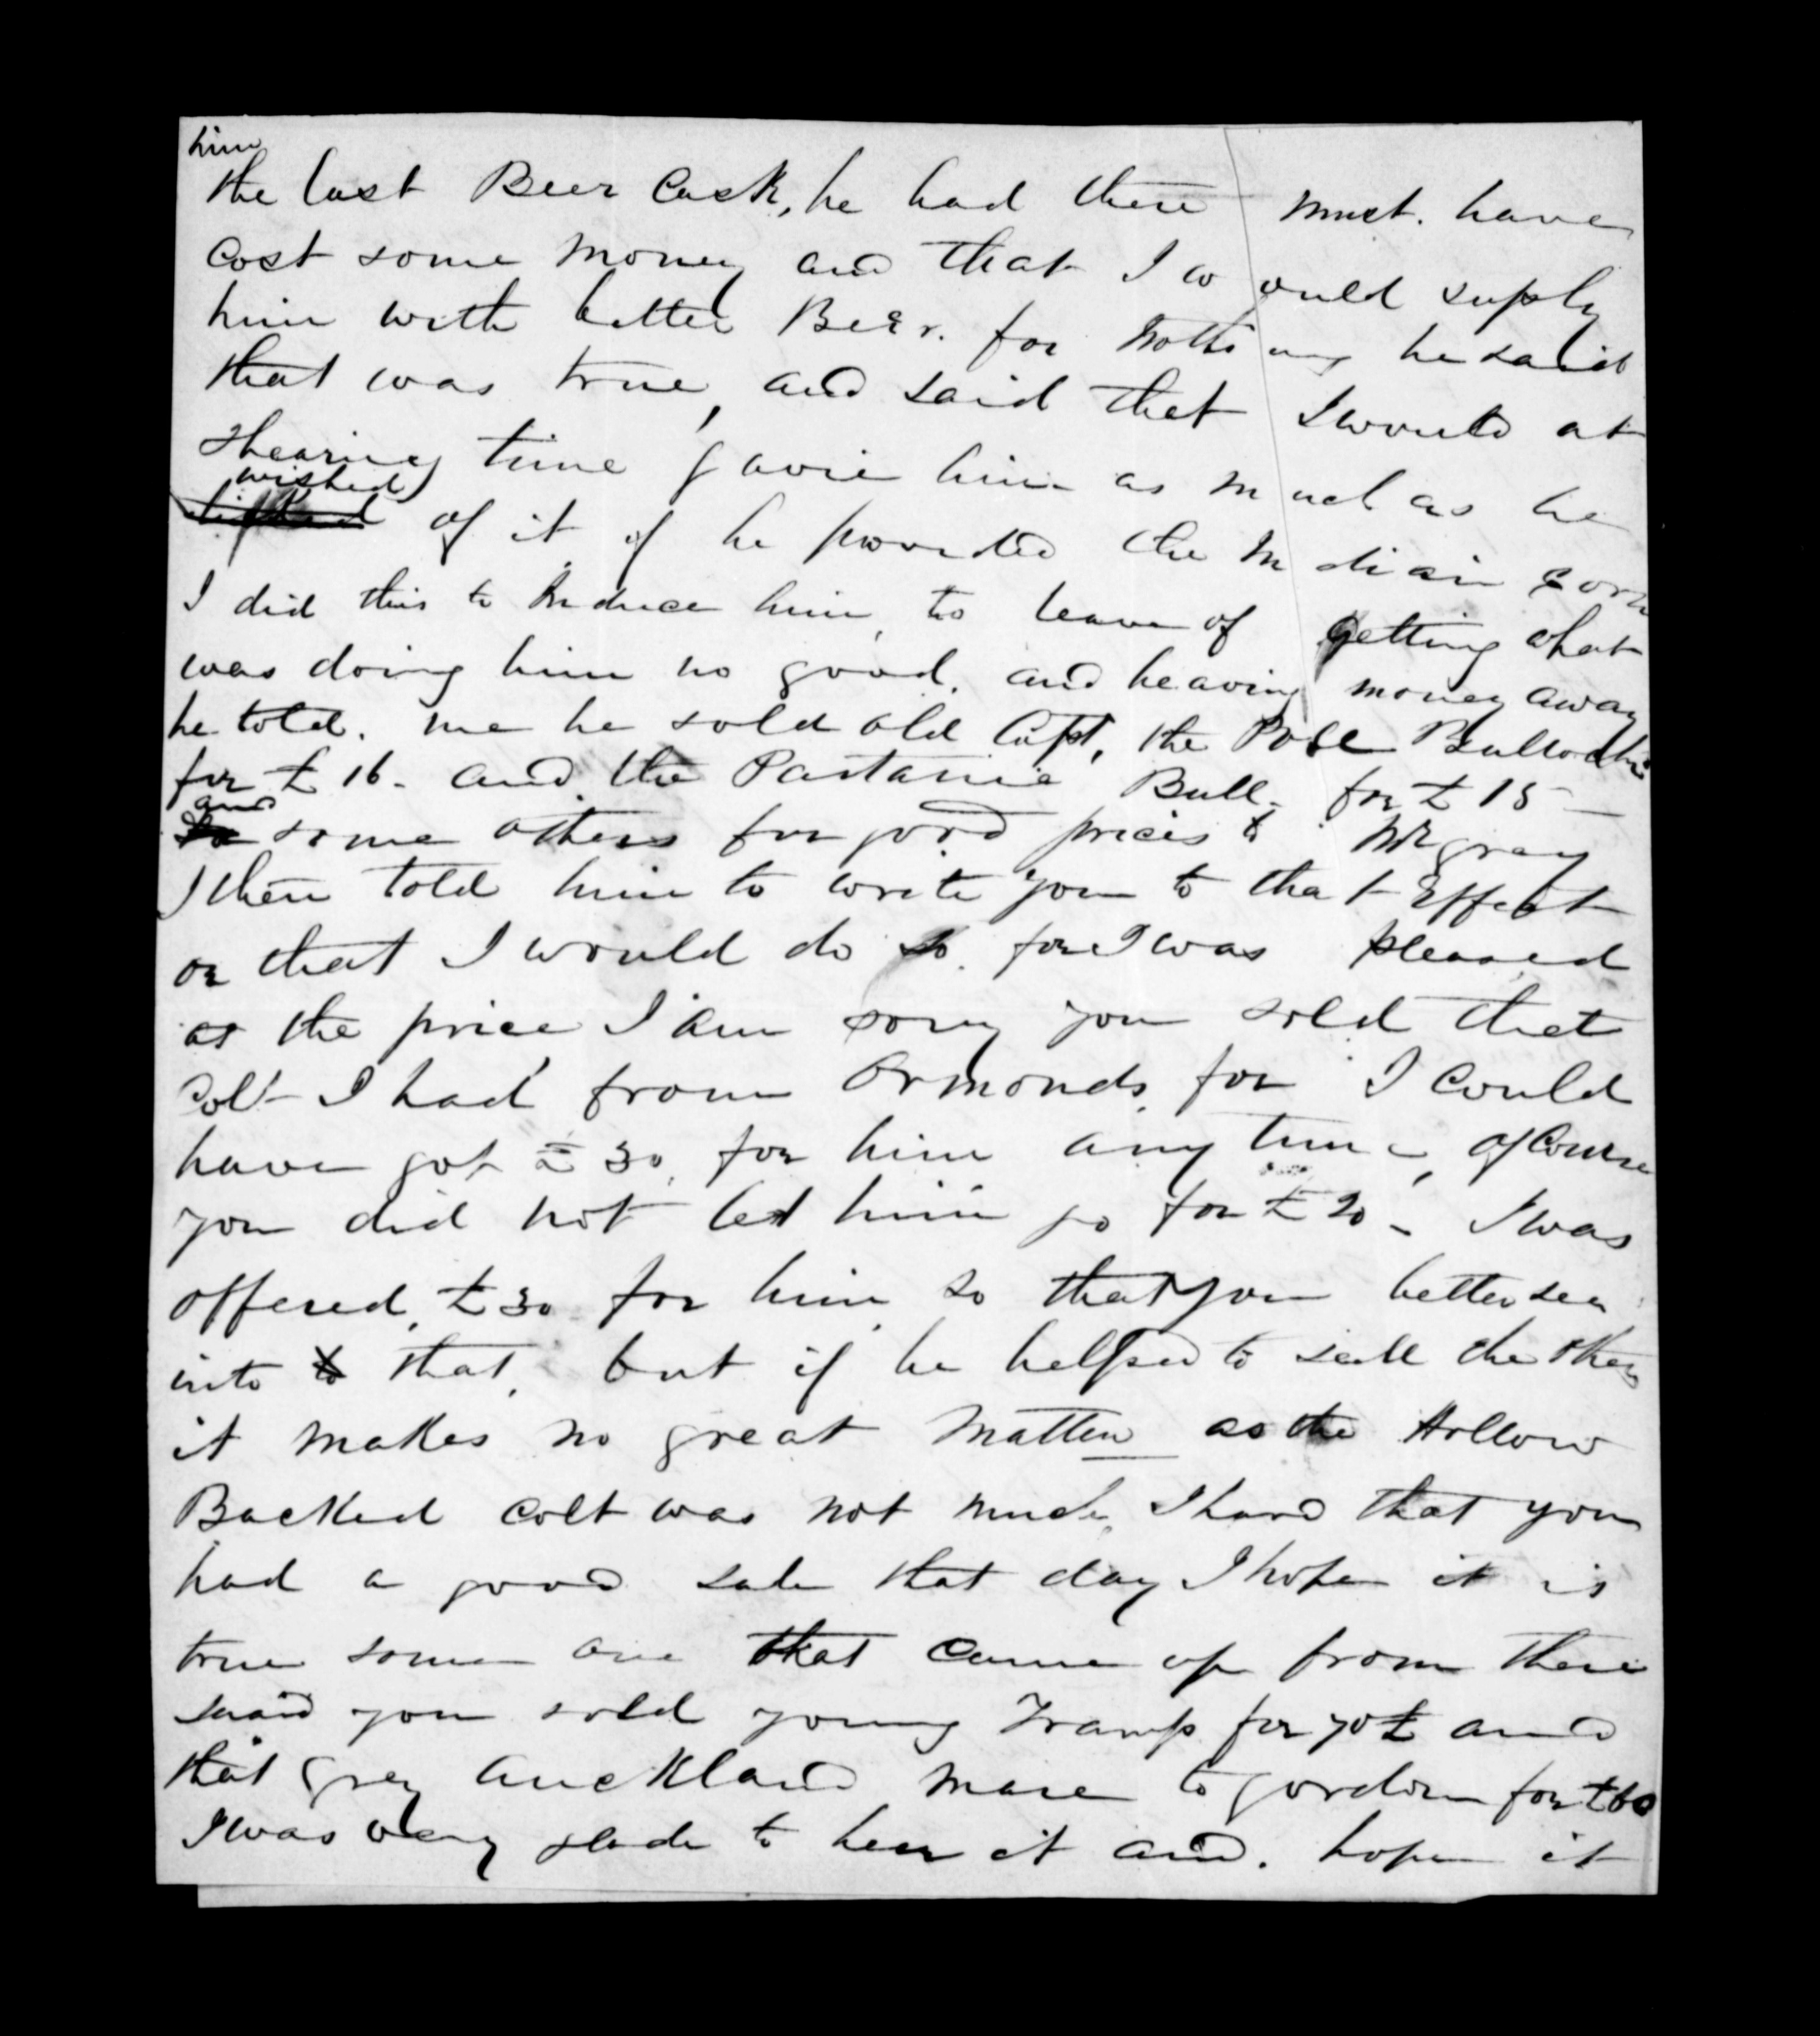 him
the last Beer Cask, he had there must. have
cost some money and that I would supply
him with better Beer. for nothing he said
that was true, and said that I would at
shearing time gavie him as much as he
wished of it if he provided the Indian Corn
I did this to Induce him, to leave of getting what
was doing him no good. and heaving money away
he told. me he sold old Capt, the Pole Bullock
for £16 - and the Pastanie Bull - for £15 -
and some others for good prices to Mr gray
I then told him to write you to that Effect
or that I would do so. for I was pleased
at the price I am sorry you sold that
Colt I had from Ormonds, for I could
have got £30, for him any time, of Course
you did not let him go for £20 - I was
offered, £30 for him, so that you better see
into that, but if he helped to sell the others
it makes no great Matter as the Hollow
Backed Colt was not much, I hard that you
had a good sale that day I hope it is
true some one that came up from there
said you sold young Tramp for 70£ and
that grey Auckland mare to gordon for £60
I was very glade to hear it and. hope it